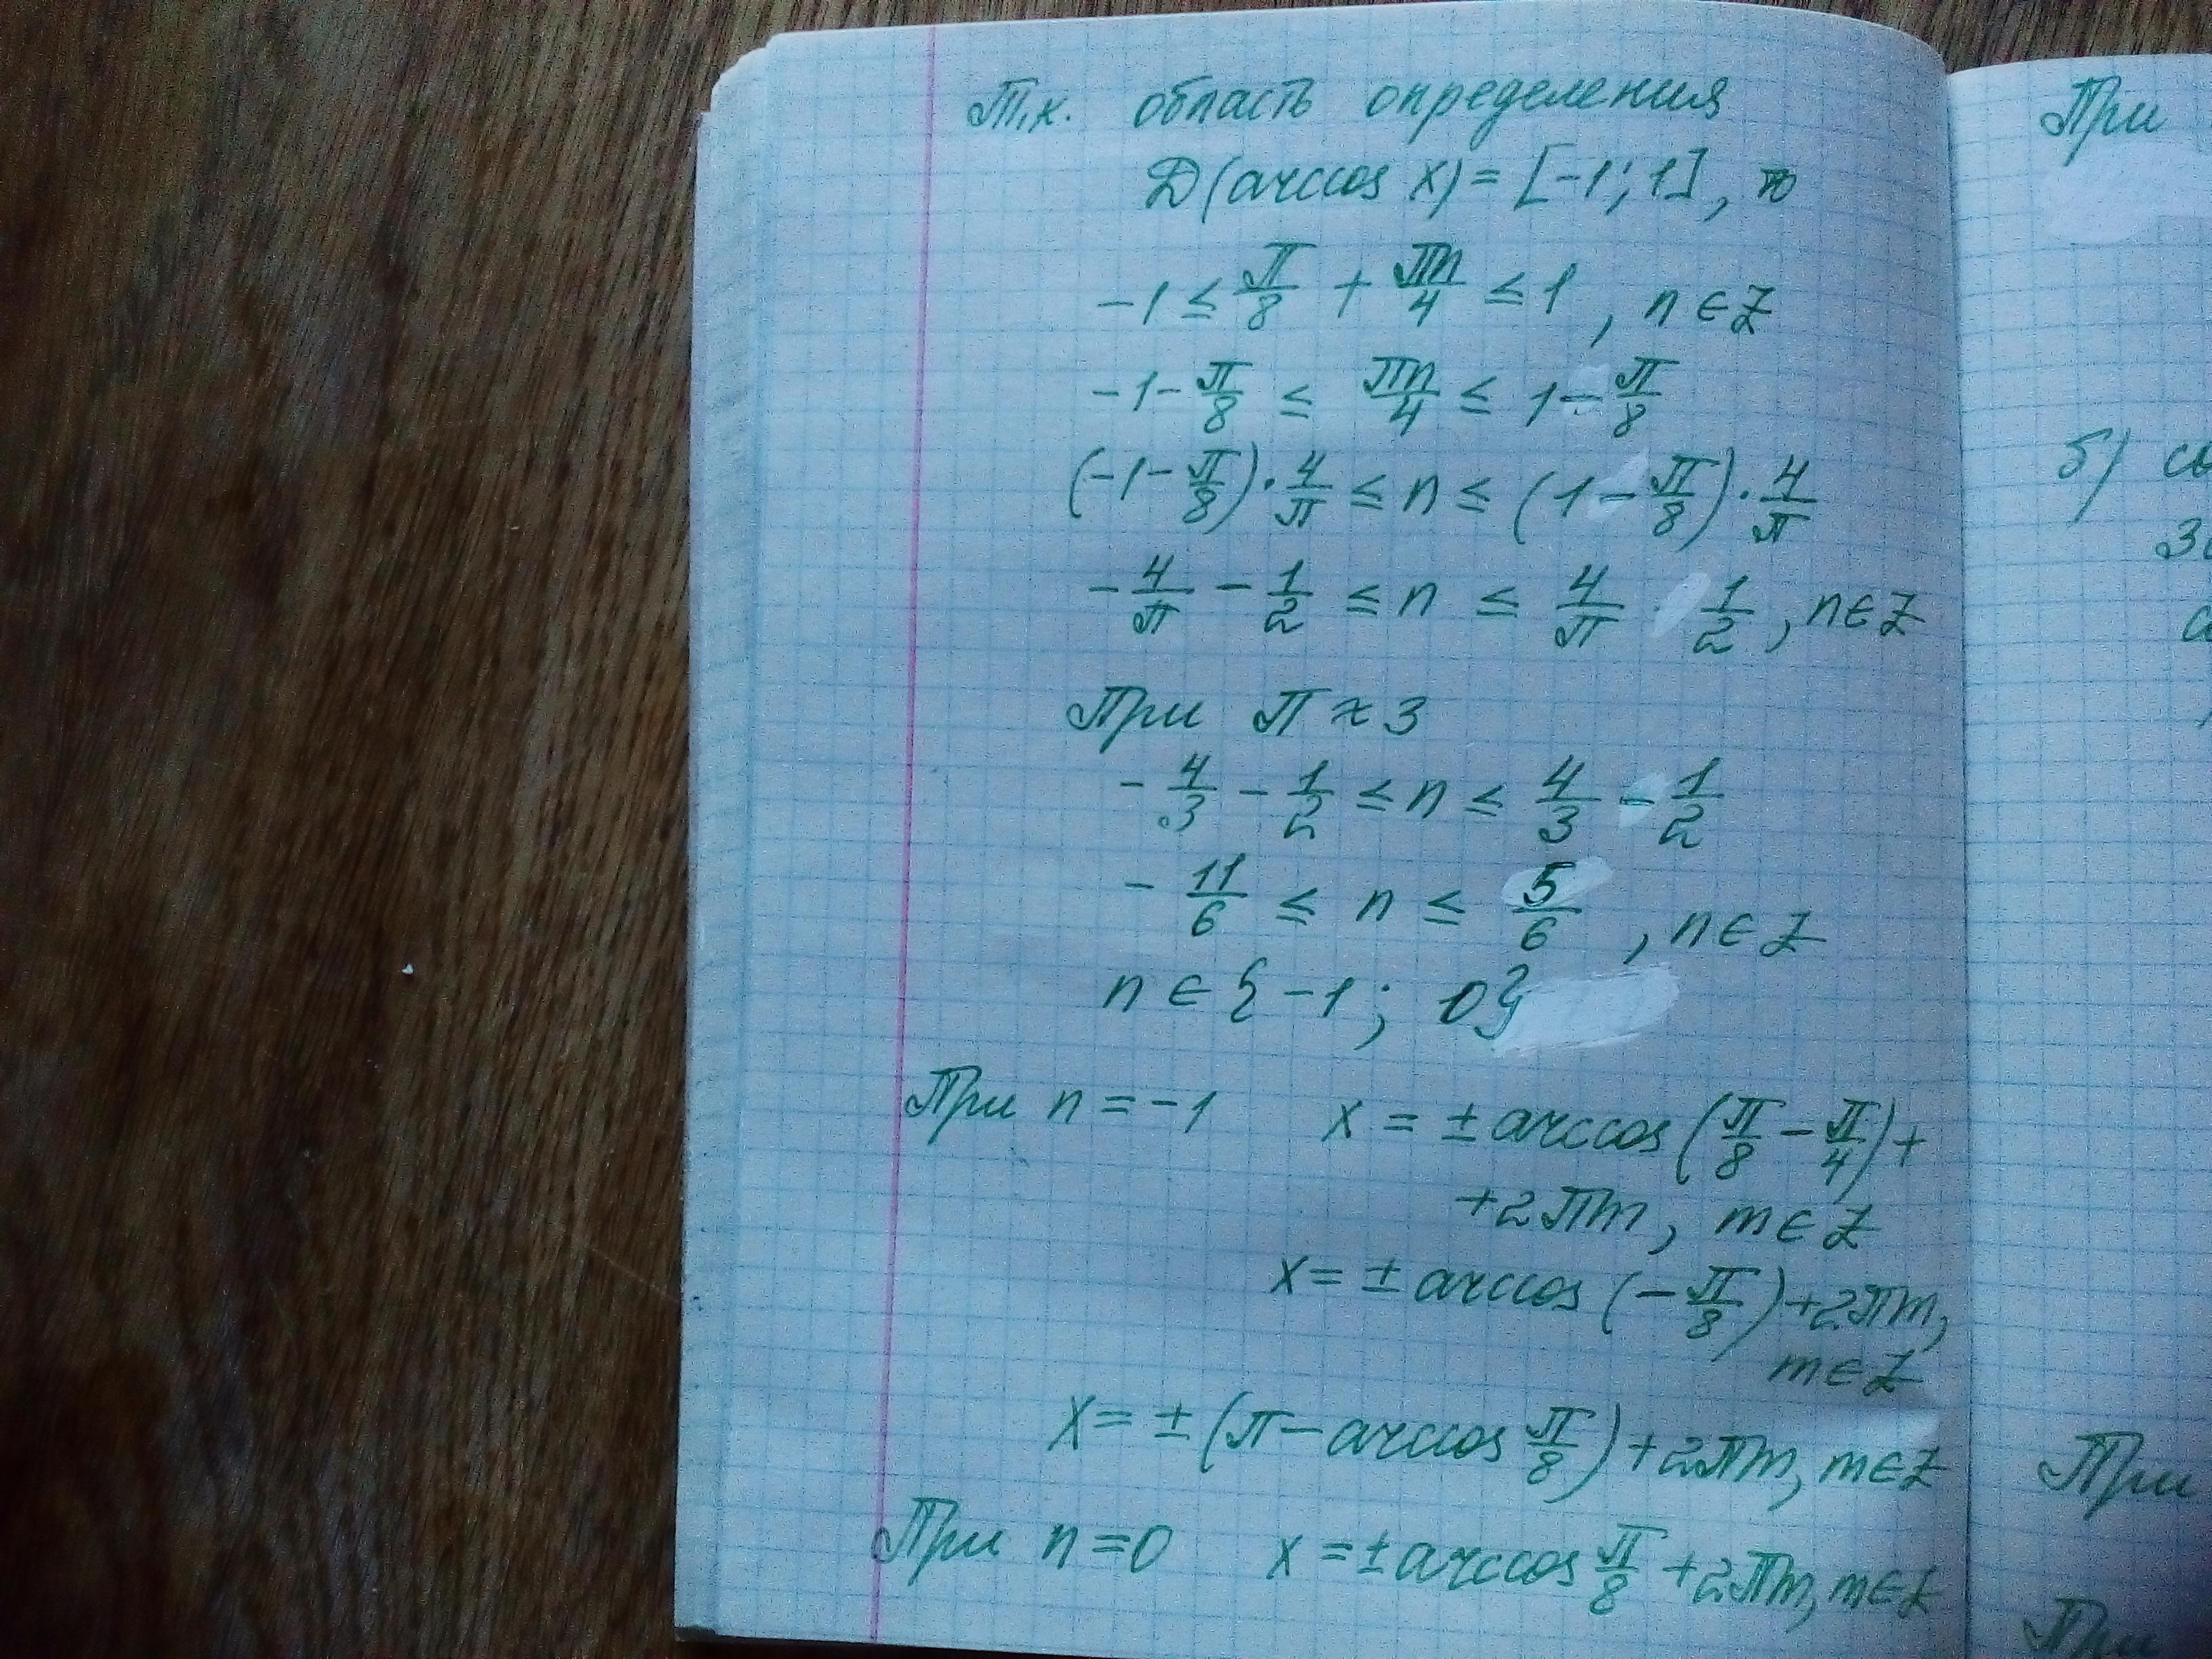 Т.к. область определения
D(arccos x) = [-1; 1], то
-1 ≤ π/8 + πn/4 ≤ 1, n ∈ Z
-1 - π/8 ≤ πn/4 ≤ 1 - π/8
(-1 - π/8) · 4/π ≤ n ≤ (1 - π/8) · 4/π
- 4/π - 1/2 ≤ n ≤ 4/π - 1/2, n ∈ Z
При π ≈ 3
- 4/3 - 1/2 ≤ n ≤ 4/3 - 1/2
- 11/6 ≤ n ≤ 5/6, n ∈ Z
n ∈ {-1; 0}
При n = -1 x = ± arccos (π/8 - π/4) +
+ 2πm, m ∈ Z
x = ± arccos (- π/8) + 2πm,
m ∈ Z
x = ± (π - arccos π/8) + 2πm, m ∈ Z
При n = 0 x = ± arccos π/8 + 2πm, m ∈ Z
При
б)
При
При